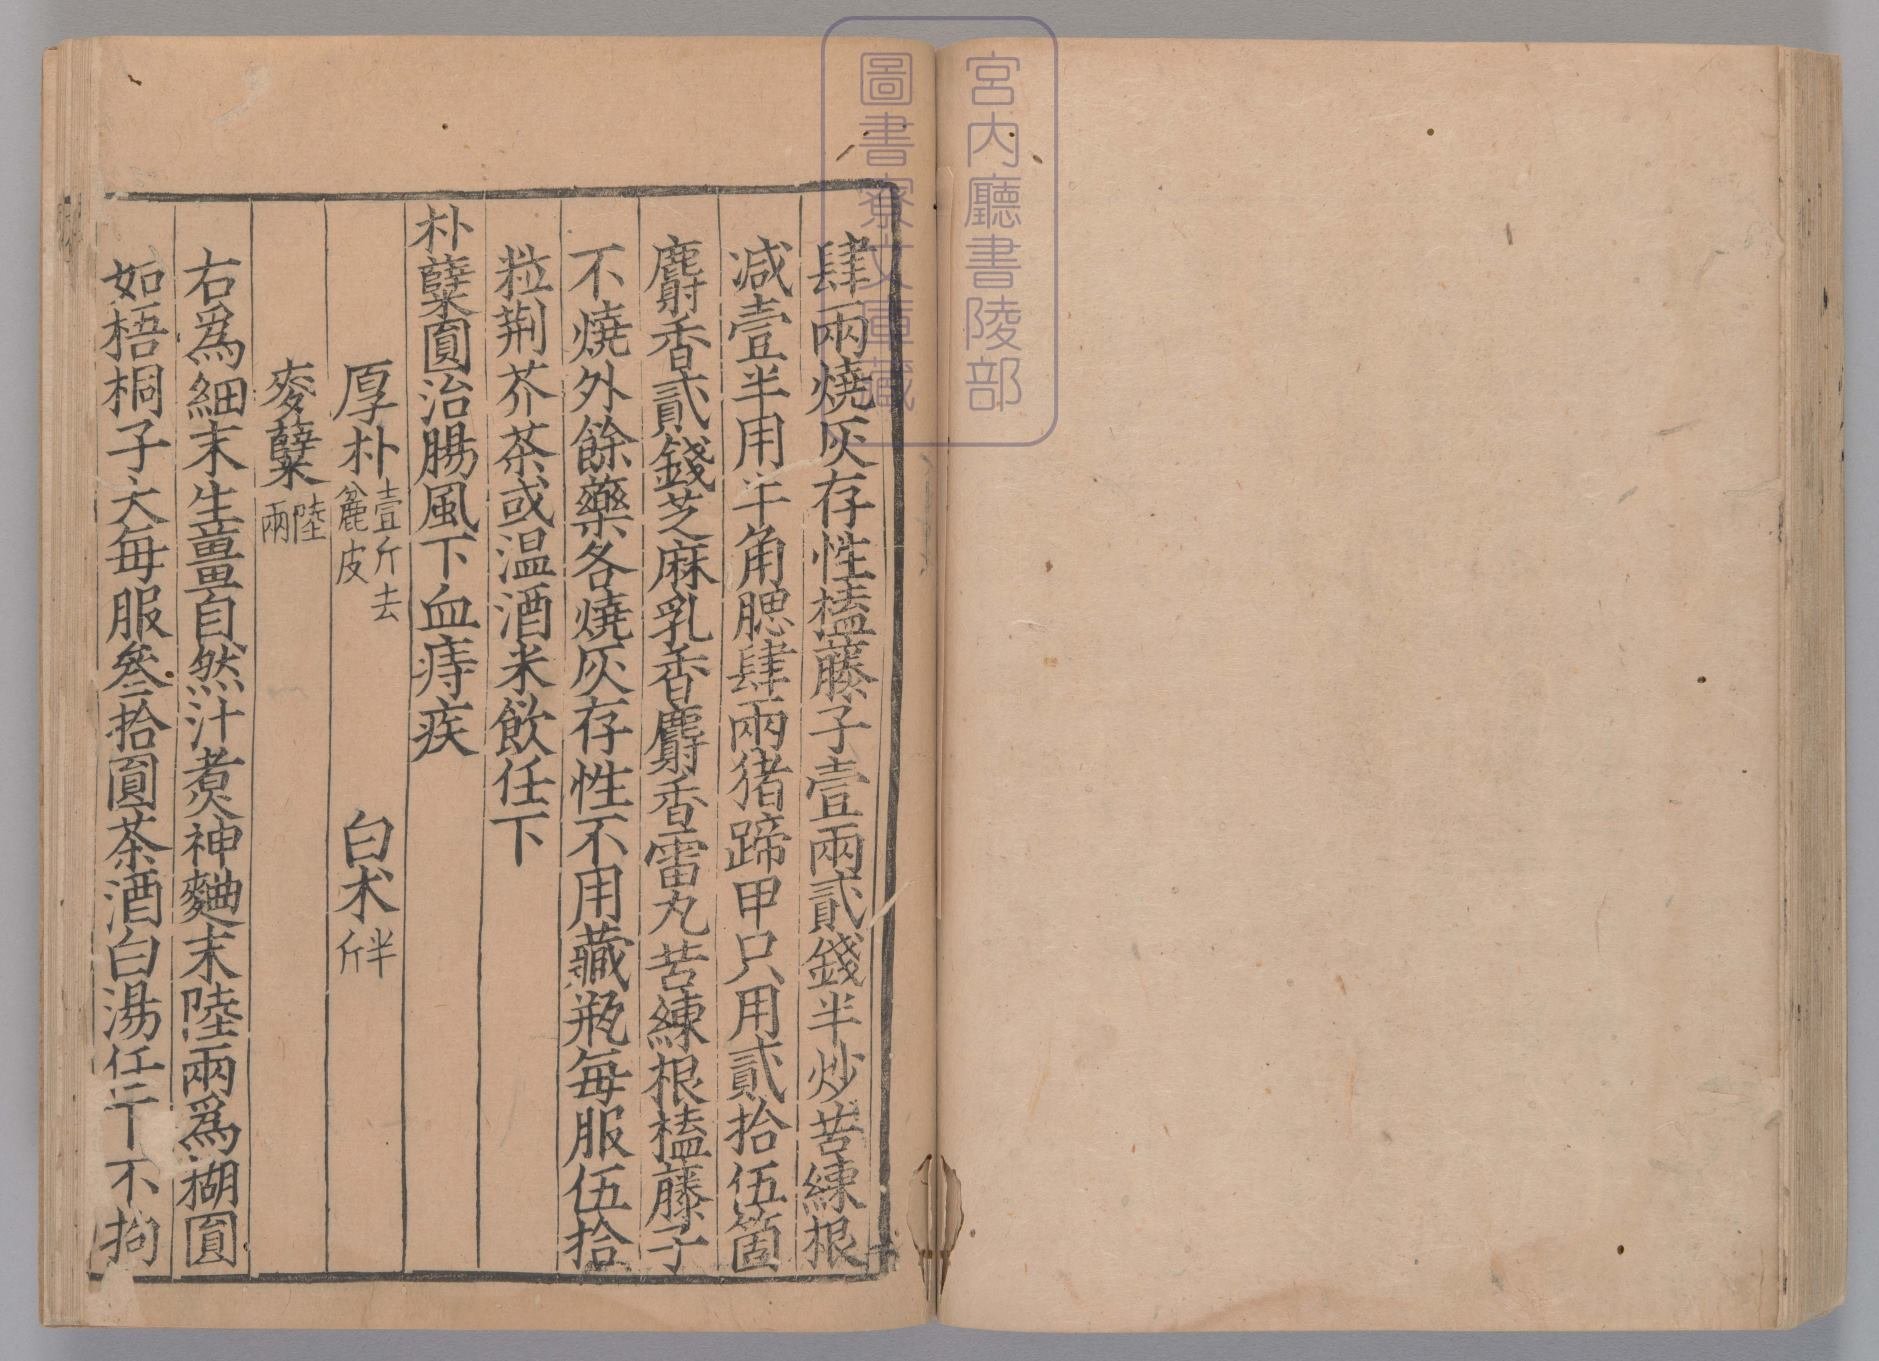 宮内廳書陵部
圖書寮文庫藏
肆兩燒灰存性榼藤子壹兩貳錢半炒苦練根
减壹半用牛角腮肆兩猪蹄甲只用貳拾伍箇
麝香貳錢芝麻乳香麝香雷丸苦練根榼藤子
不燒外餘藥各燒灰存性不用藏瓶每服伍拾
粒荆芥茶或温酒米飲任下
朴糵圓治腸風下血痔疾
厚朴壹斤去麄皮 白术半斤
麥糵陸兩
右爲細末生薑自然汁煮神麯末陸兩爲糊圓
如梧桐子大每服叄拾圓茶酒白湯任下不拘